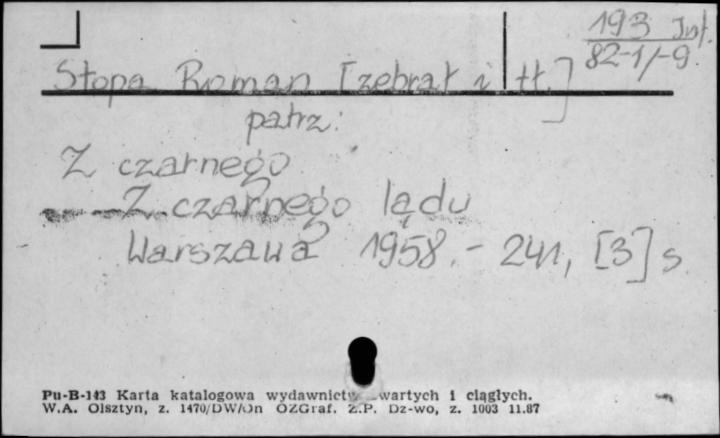 193 Inf.
82-1/-9.
Stopa Roman [zebrał i tł.]
patrz:
Z czarnego
Z czarnego lądu
Warszawa 1958. - 241, [3] s
Pu-B-143 Karta katalogowa wydawnictw wartych i ciągłych.
W.A. Olsztyn, z. 1470/DW/On OZGraf. Z.P. Dz-wo, z. 1003 11.87